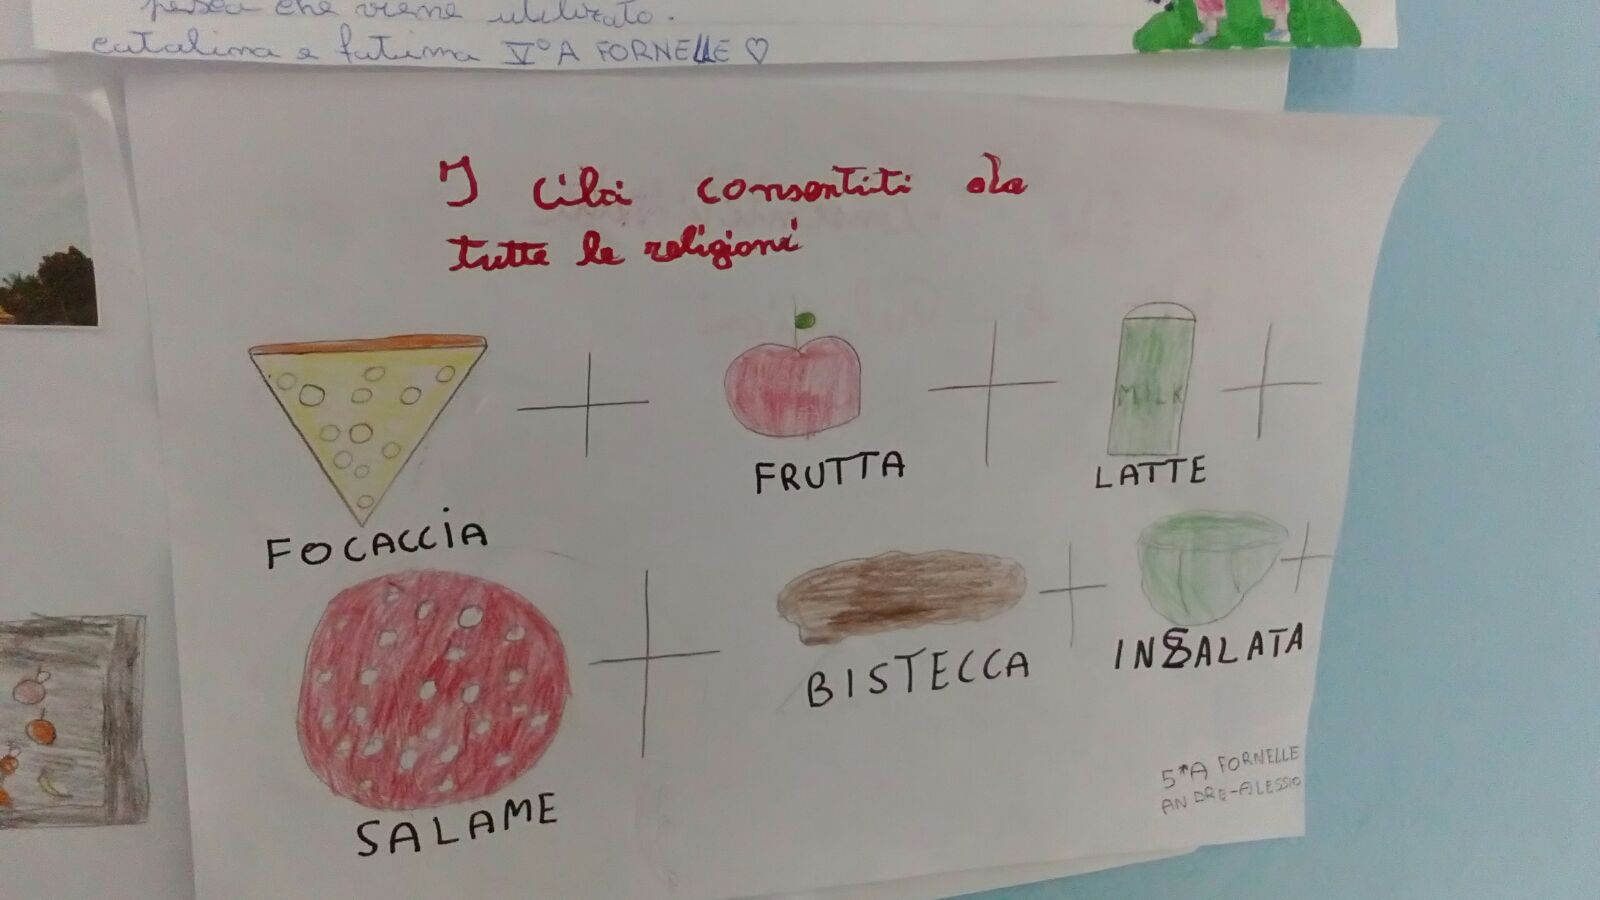 pesca che viene utilizzato.
catalina e fatima V°A FORNELLE ♡
I cibi consentiti da
tutte le religioni
MILK
FRUTTA
LATTE
FOCACCIA
BISTECCA
INSALATA
SALAME
5*A FORNELLE
ANDRE-ALESSIO